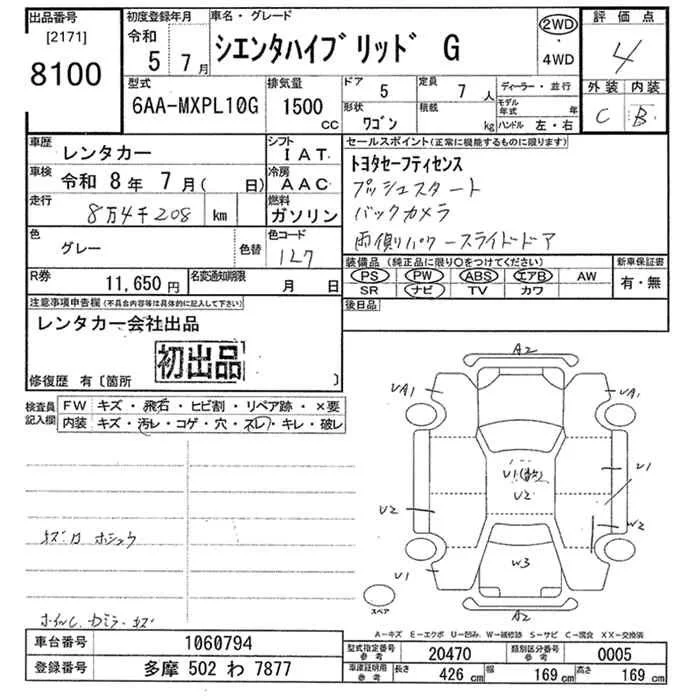 出品番号
[2171]
8100
初度登録年月
令和
5 7月
車名・グレード
シエンタハイブリッド G
2WD
・
4WD
評価点
4
外装 内装
C B
型式
6AA-MXPL10G
排気量
1500
CC
ドア
5
形状
ワゴン
定員
7 人
積載
kg
ディーラー・並行
モデル年式 年
ハンドル 左・右
車歴
レンタカー
シフト
IAT
車検
令和 8年 7月( 日)
冷房
AAC
走行
8万4千208 km
燃料
ガソリン
色
グレー
色替
色コード
1L7
R券
11,650円
名変通知期限
月 日
セールスポイント(正常に機能するものに限ります)
トヨタセーフティセンス
プッシュスタート
バックカメラ
両側パワースライドドア
装備品(純正品に限り○をつけてください)
PS PW ABS エアB AW
SR ナビ TV カワ
新車保証書
有・無
後日品
注意事項申告欄(不具合内容等は具体的に記入して下さい)
レンタカー会社出品
初出品
修復歴 有〔箇所 〕
検査員記入欄
FW キズ・飛石・ヒビ割・リペア跡・×要
内装 キズ・汚レ・コゲ・穴・スレ・キレ・破レ
キズ有 ホシュウ
ホイルC.カミラーキズ
A2
UA1 UA1
U1
U2
U2
W2
W3
U1
A2
スペア
A-キズ E-エクボ U-凹み W-補修跡 S-サビ C-腐食 XX-交換済
車台番号
1060794
登録番号
多摩 502 わ 7877
型式指定番号
参考
20470
類別区分番号
参考
0005
車庫証明用
参考
長さ 426 cm 幅 169 cm 高さ 169 cm